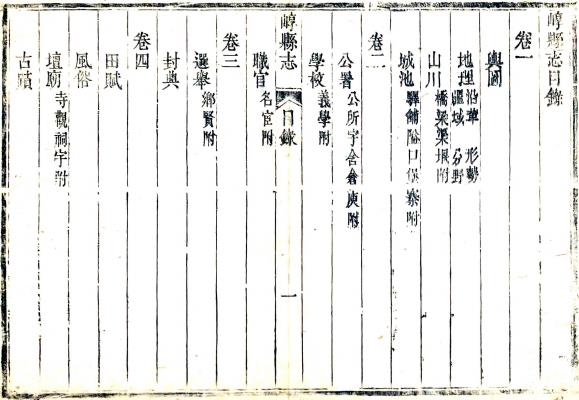 崞縣志目錄
卷一
輿圖
地理 沿革 形勢 疆域 分野
山川 橋梁渠堰附
城池 驛鋪隘口堡寨附
卷二
公署 公所宇舍倉庾附
學校 義學附
崞縣志 目錄 一
職官 名宦附
卷三
選舉 鄉賢附
封典
卷四
田賦
風俗
壇廟 寺觀祠宇附
古蹟